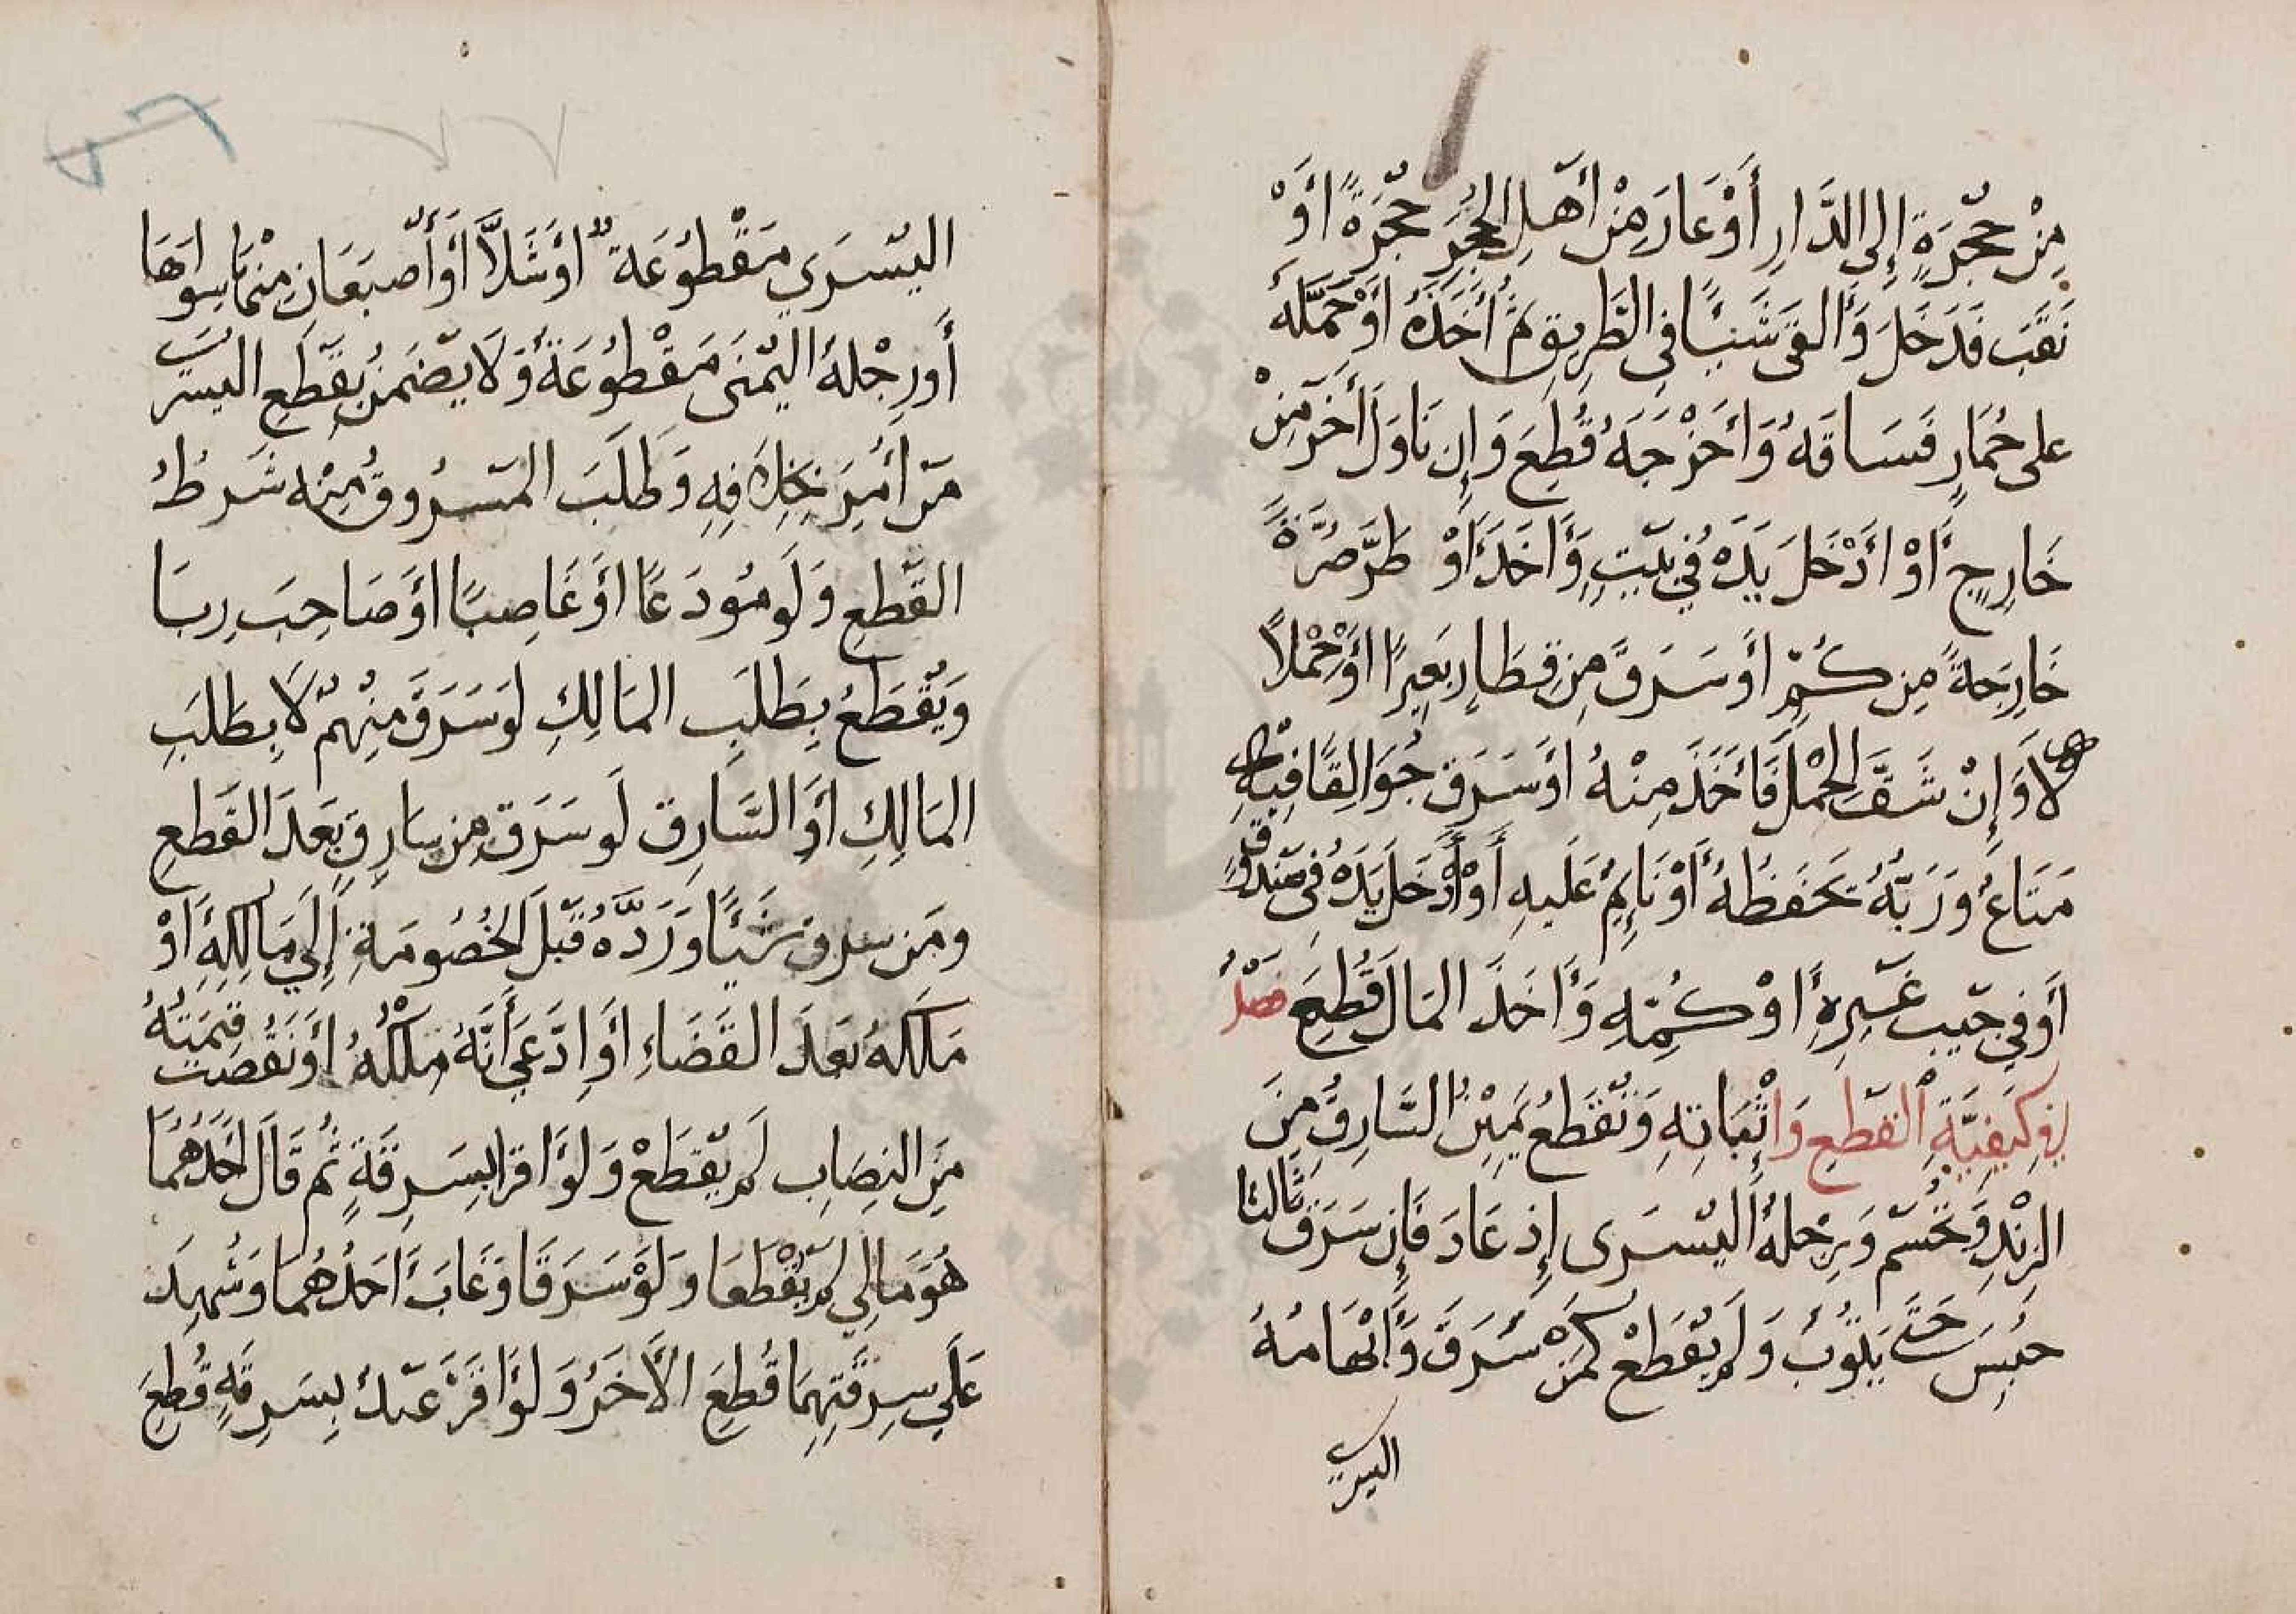 مِنْ حُجْرَةٍ إِلى الدَّارِ أَوْ غَارَ مِنْ أَهلِ الحُجَرِ حُجْرَةً أَوْ
نَقَبَ فَدَخَلَ وَأَلقى شَيئًا في الطَّرِيقِ ثُمَّ أَخَذَهُ أَوْ حَمَّلَهُ
على حِمَارٍ فَسَاقَهُ وَأَخْرَجَهُ قُطِعَ وَإِن نَاوَلَ أَخَرَ مِنْ
خَارِجٍ أَوْ أَدْخَلَ يَدَهُ في بَيْتٍ وَأَخَذَ أَوْ طَرَّ صُرَّةً
خَارِجَةً مِن كُمٍّ أَو سَرَقَ مِن قِطَارٍ بَعِيرًا أَوْ حِمْلًا
لا وَإِنْ شَقَّ الحِمْلَ فَأَخَذَ مِنْهُ أَوْ سَرَقَ جُوَالِقًا فِيْهِ
مَتَاعُ وَرَبُّهُ يَحفَظُهُ أَوْ نَائِمٌ عَلَيهِ أَوْ أَدْخَلَ يَدَهُ فى صَنْدُوقٍ
أَو في جَيبِ غَيْرِهِ أَوْ كُمِّهِ وَأَخَذَ المَالَ قُطِعَ فصل
في كَيفِيَّةِ القَطعِ وَإِثْبَاتِهِ وَتُقْطَعُ يَمِيْنُ السَّارِقِ مِنَ
الزِنْدِ وَتُحْسَمُ وَرِجْلُهُ اليُسْرَى إِن عَادَ فَإِن سَرَقَ ثَالثا
حُبِسَ حَتى يَتُوبَ وَلَم يُقْطَعْ كَمَنْ سَرَقَ وَإِبْهَامُهُ
اليسرى
اليُسْرَي مَقْطُوعَةٌ أَوْ شَلَّا أَوْ أَصْبَعَانِ مِنْهَا سِوَاهَا
أَو رِجْلُهُ اليُمْنَى مَقْطُوعَةٌ وَلَا يَضْمَنُ بِقَطعِ اليسرى
مَن أُمِرَ بِخِلَافِهِ وَطَلَبَ المَسْرُوقِ مِنْهُ شَرطُ
القَطعِ وَلَو مُودَعًا أَوْ غَاصِبًا أَوْ صَاحِبَ رِبَا
وَيُقْطَعُ بِطَلَبِ المَالِكِ لَو سَرَقَ مِنْهُمْ لَا بِطَلَبِ
المَالِكِ أَوِ السَّارِقِ لَو سَرَقَ مِن سَارِقٍ بَعدَ القَطعِ
ومَن سرق شَيئًا وَرَدَّهُ قَبْلَ الخُصُومَةِ إِلَي مَالِكِهِ أَوْ
مَلَكَهُ بَعدَ القَضَاءِ أَوِ ادَّعَي أَنَّهُ مِلْكُهُ أَوْ نَقُصَت قِيمَتُهُ
مِنَ النِصَابِ لَم يُقْطَعْ وَلَوْ أَقرا بِسَرِقَةٍ ثُم قَالَ أَحَدُهُمَا
هُوَ مَالِي لَم يُقْطَعَا وَلَوْ سَرَقَا وَغَابَ أَحَدُهُمَا وَشُهِدَ
عَلَي سَرِقَتِهِمَا قُطِعَ الآخَرُ وَلَوْ أَقَرَّ عَبْدٌ بِسَرِقَةٍ قُطِعَ